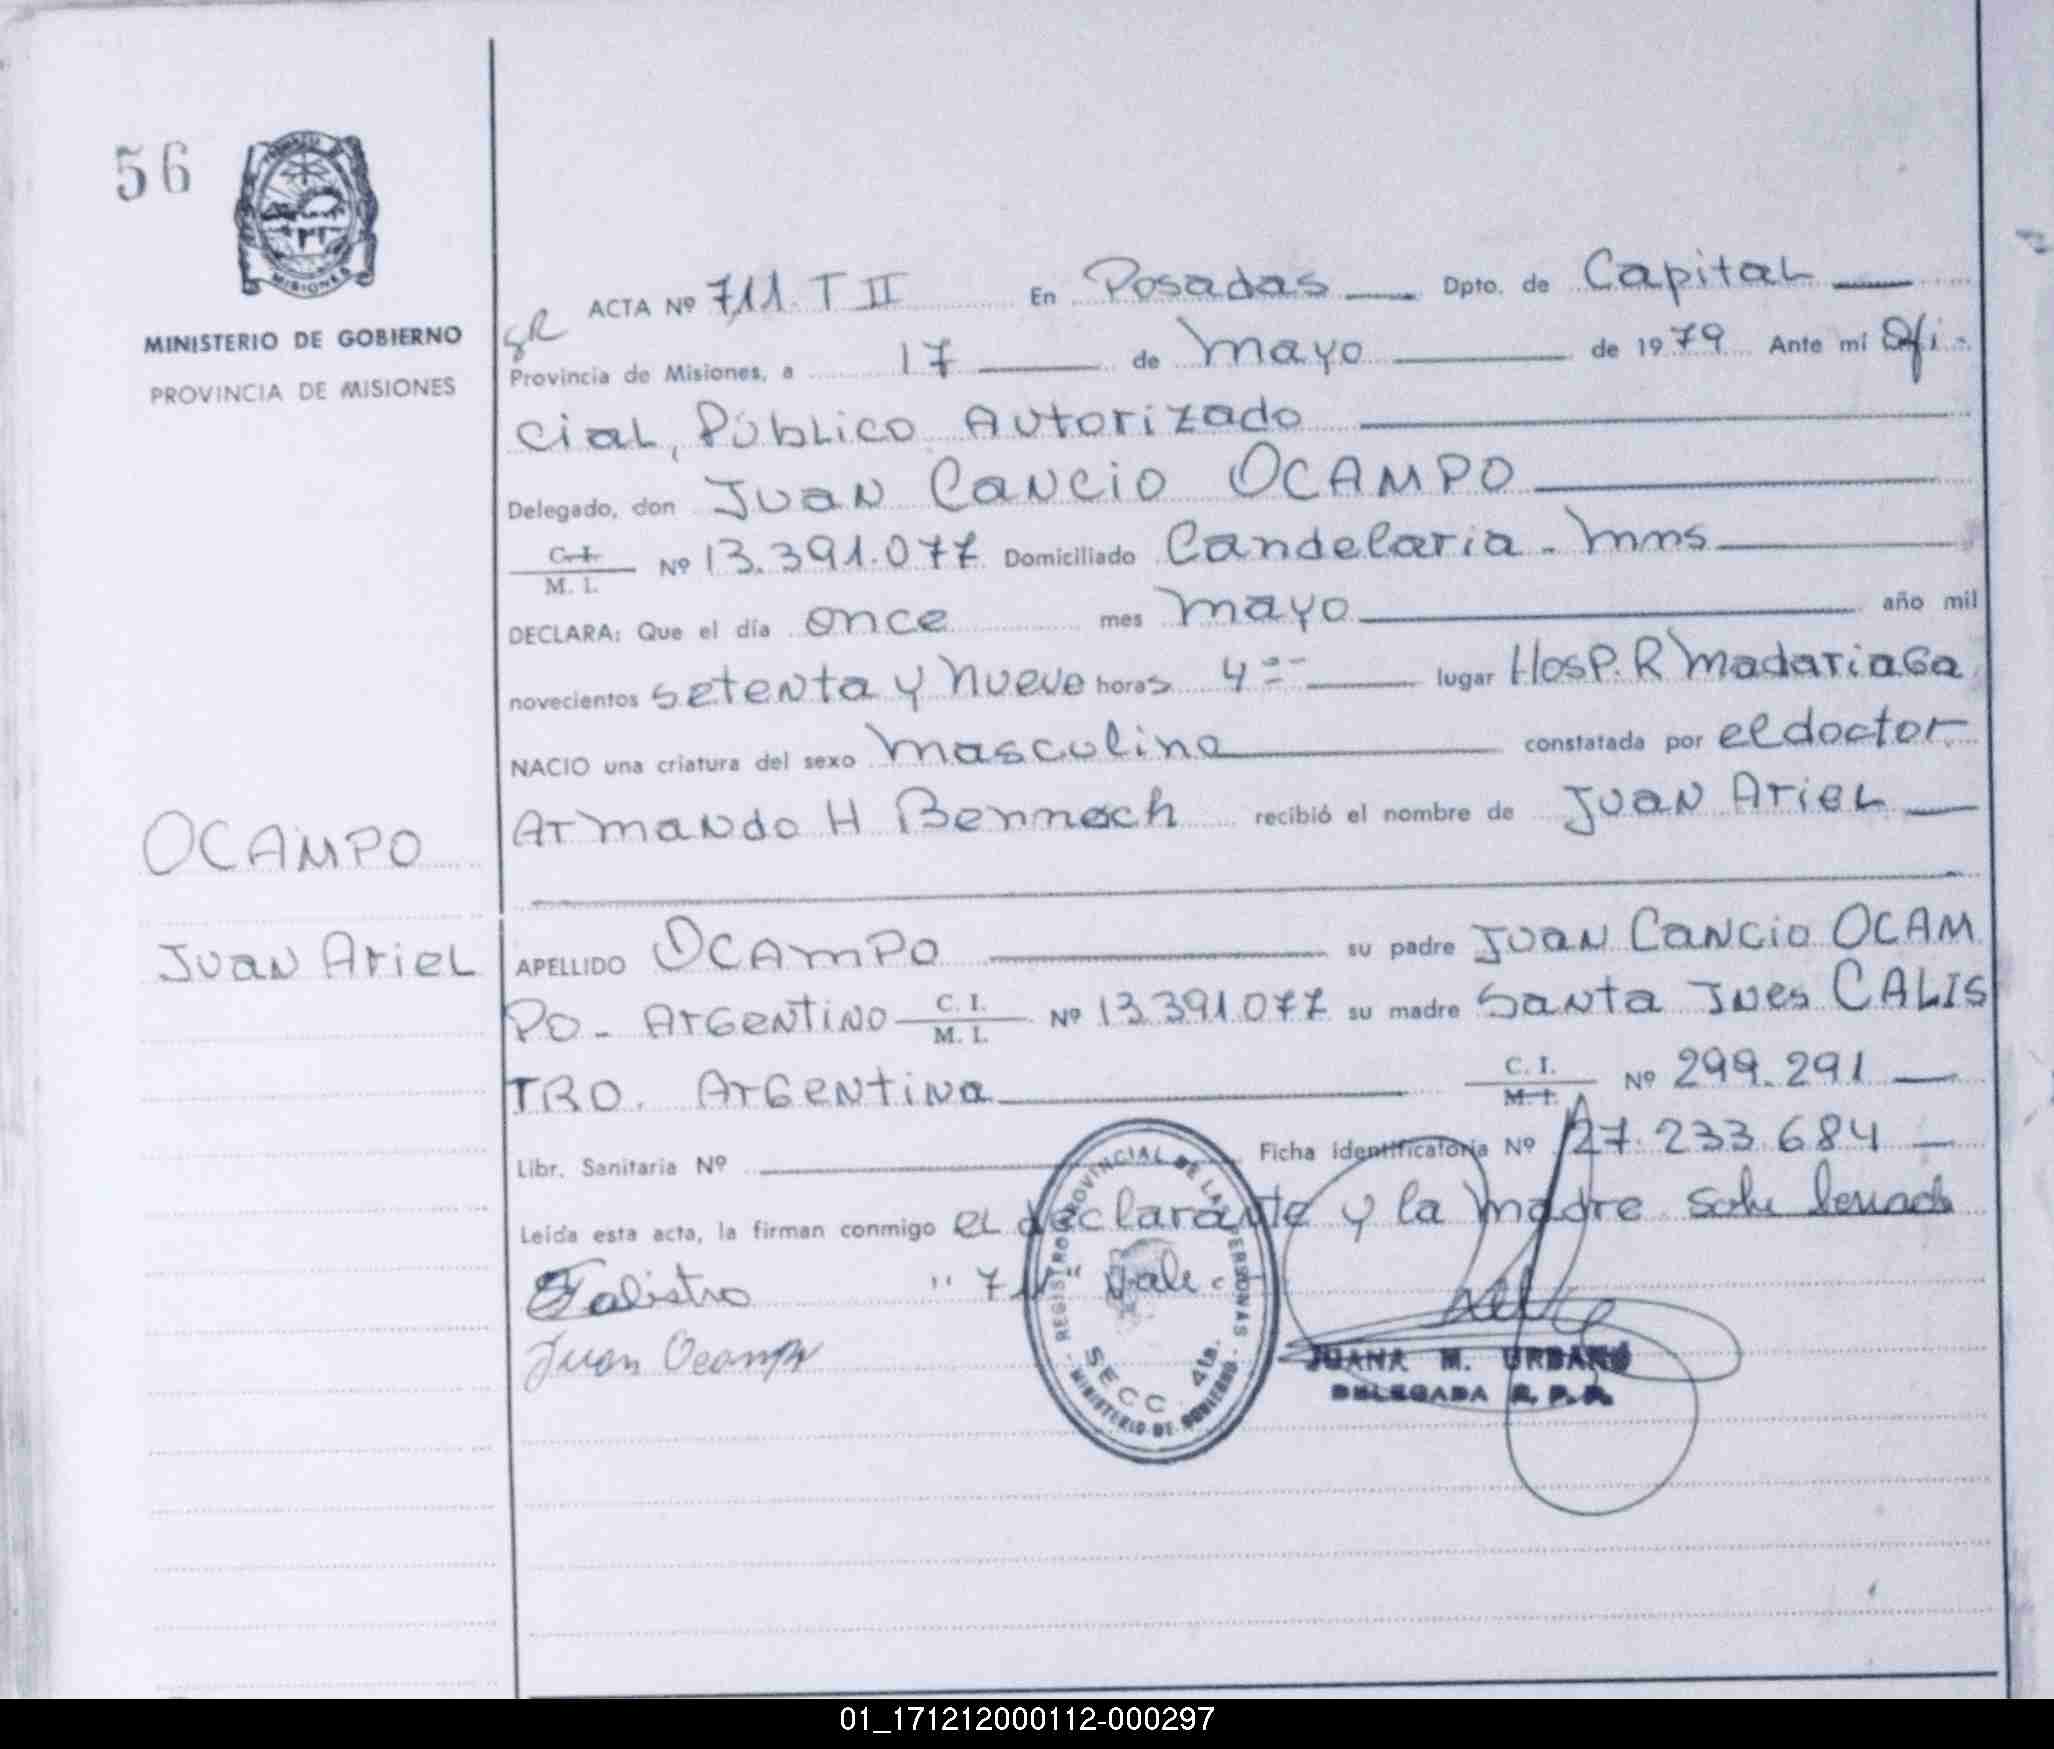 56
MISIONES
MINISTERIO DE GOBIERNO
PROVINCIA DE MISIONES
ACTA Nº 711. T II En Posadas Dpto. de Capital
Provincia de Misiones, a 17 de mayo de 1979 Ante mí Ofi-
cial, Público Autorizado
Delegado, don Juan Cancio OCAMPO
C. I. M. I. Nº 13.391.077 Domiciliado Candelaria - mns
DECLARA: Que el día once mes mayo año mil
novecientos setenta y nueve horas 4 lugar Hosp. R Madariaga
NACIO una criatura del sexo masculino constatada por el doctor
Armando H recibió el nombre de Juan Ariel
OCAMPO
Juan Ariel
APELLIDO OCAMPO su padre Juan Cancio OCAM
PO - Argentino C. I. M. I. Nº 13.391.077 su madre Santa Ines CALIS
TRO. Argentina C. I. M. I. Nº 299.291
Libr. Sanitaria Nº Ficha identificatoria Nº 27.233.684
Leída esta acta, la firman conmigo el declarante y la madre
"711" vale.
Juan Ocampo
REGISTRO PROVINCIAL DE LAS PERSONAS
SECC. 4ta.
MINISTERIO DE GOBIERNO
JUANA M. URBANO
DELEGADA R. P. P.
01_171212000112-000297